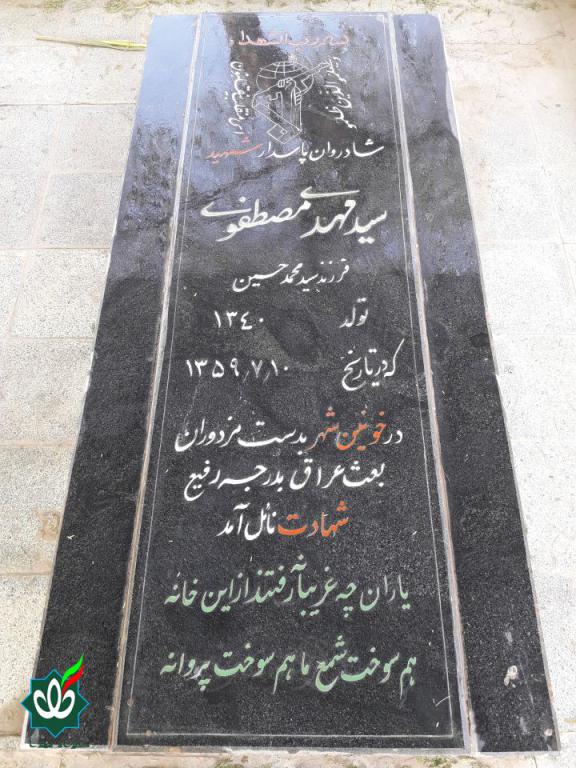 شادروان پاسدار شهید
سید مهدی مصطفوی
فرزند سید محمد حسین
تولد ۱۳۴۰
که در تاریخ ۱۳۵۹٫۷٫۱۰
در خونین شهر بدست مزدوران
بعث عراق بدرجه رفیع
شهادت نائل آمد
یاران چه غریبانه رفتند از این خانه
هم سوخت شمع ما هم سوخت پروانه